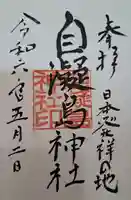 奉拝
日本発祥の地
自凝島神社
令和六年五月二日